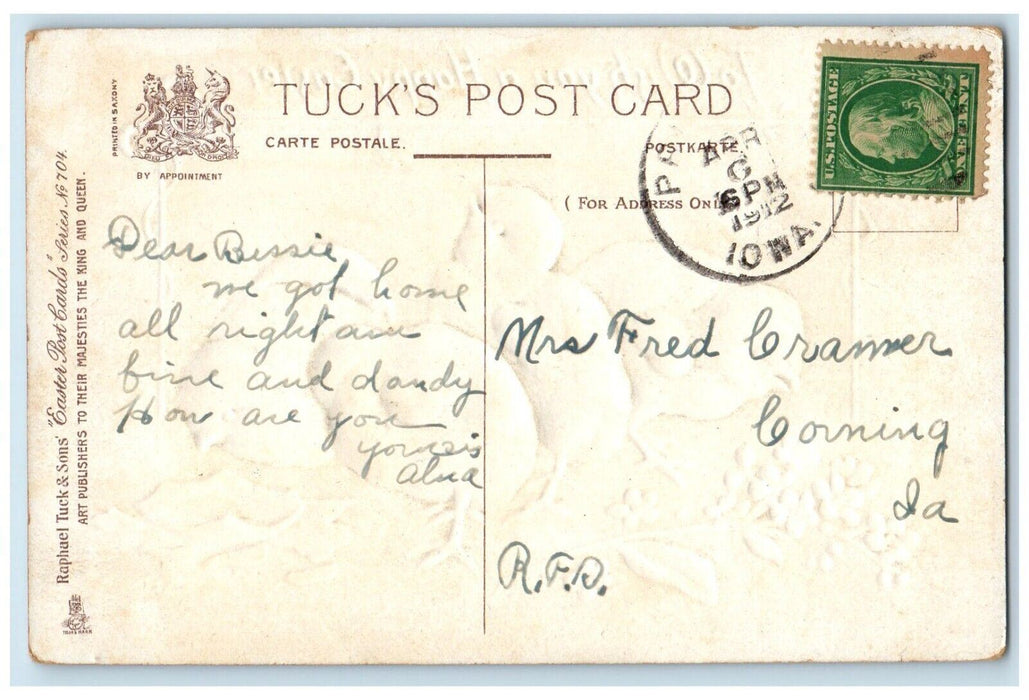 To Wish you a Happy Easter
PRINTED IN SAXONY
BY APPOINTMENT
TUCK'S POST CARD
CARTE POSTALE.
POSTKARTE.
( FOR ADDRESS ONLY
U.S. POSTAGE
ONE CENT
APR
6
6 PM
1912
IOWA.
Dear Bessie
we got home
all right am
fine and dandy
How are you
yours
Alva
Mrs Fred Cramer
Corning
Ia
R.F.D.
Raphael Tuck & Sons' "Easter Post Cards" Series No 704.
ART PUBLISHERS TO THEIR MAJESTIES THE KING AND QUEEN.